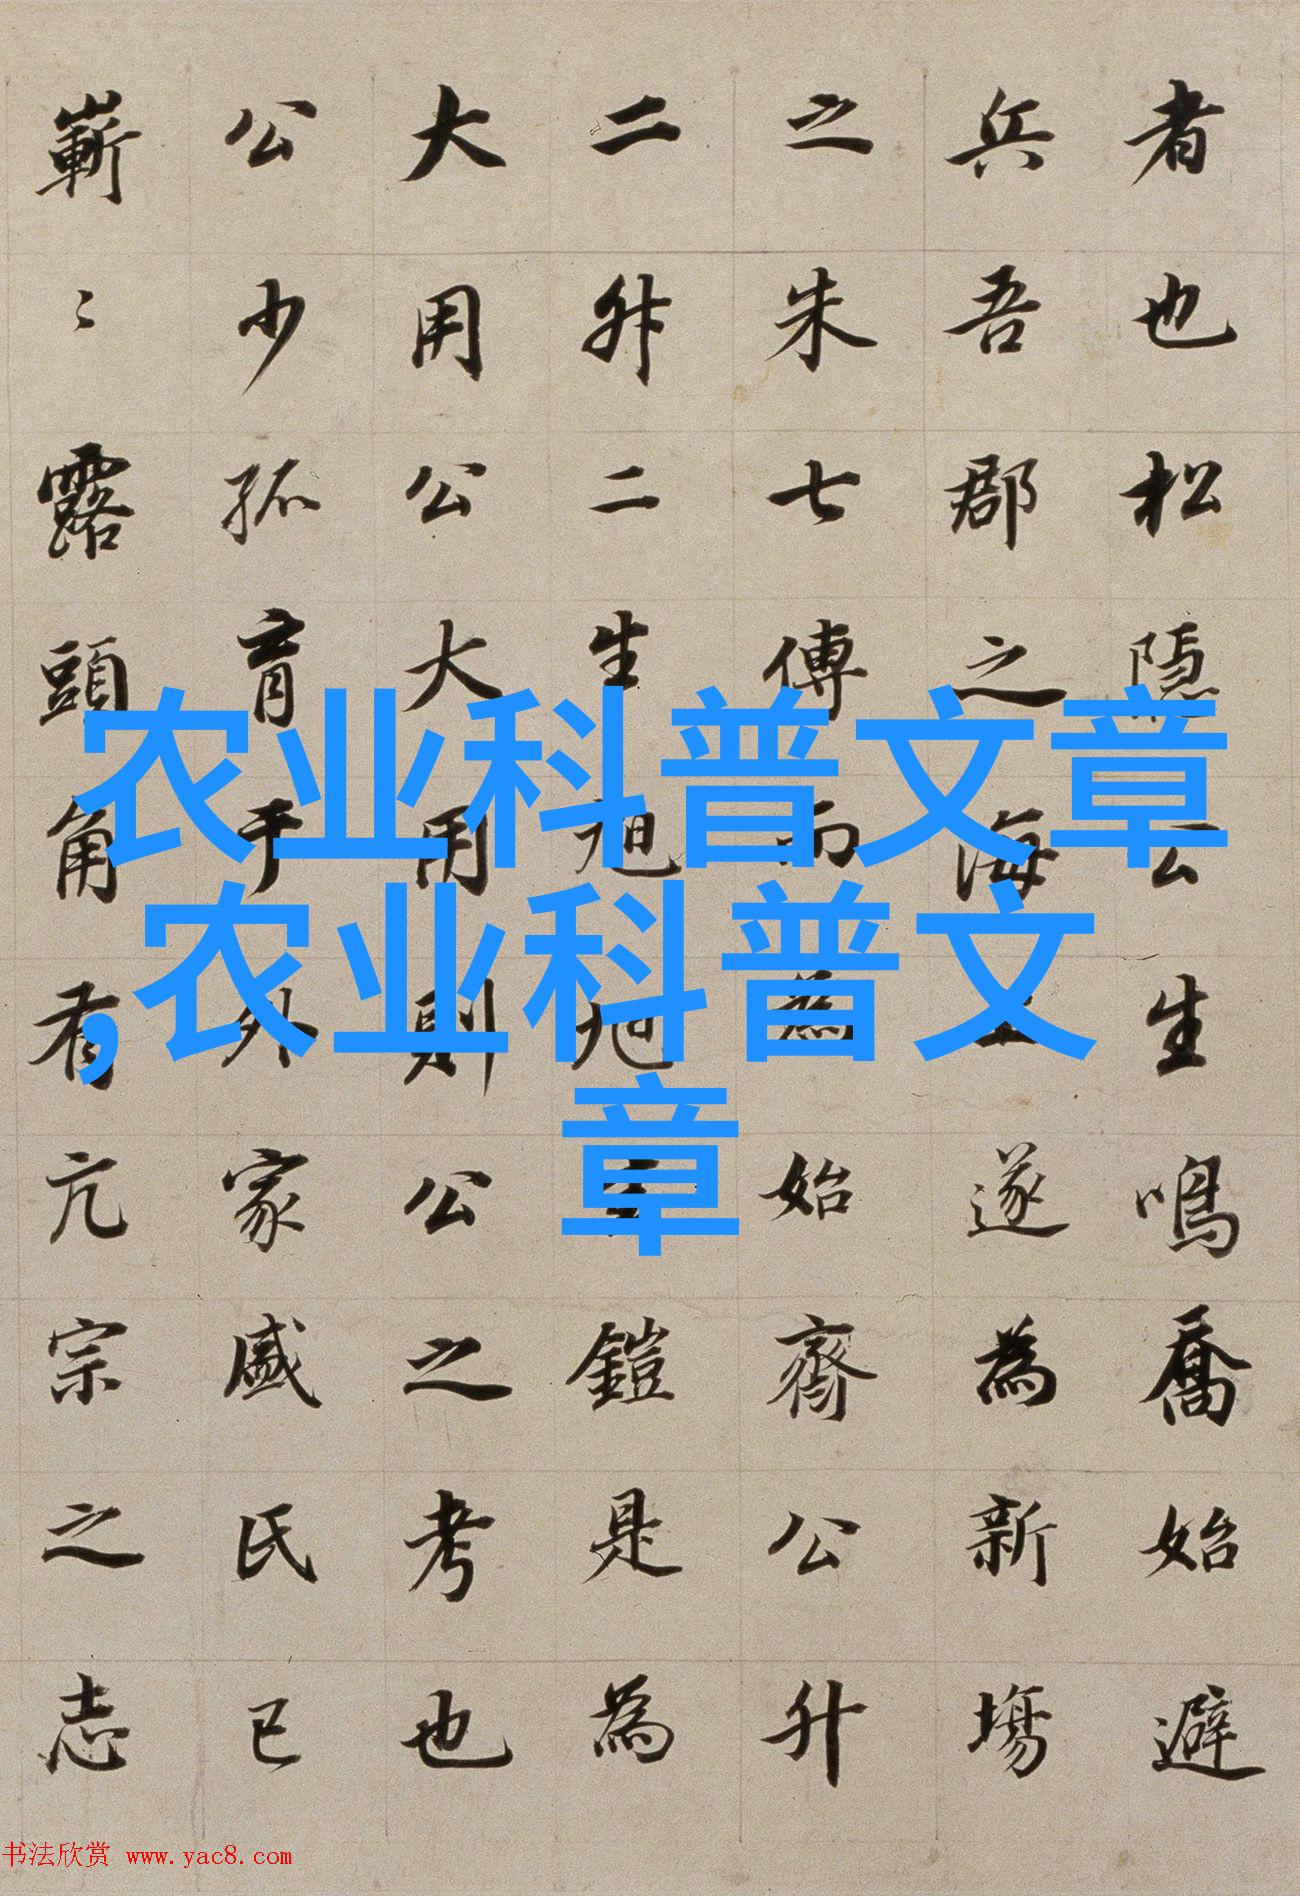 者也松隱公生鳴喬始避
兵吾郡之海上遂為新場
之朱七傅而為始齊公升
二升二生旭旭生鎧是為
大用公大用則公之考也
公少孤育于外家戚氏已
嶄〻露頭角有亢宗之志
农业科普文章
,农业科普文
章
书法欣赏 www.yac8.com